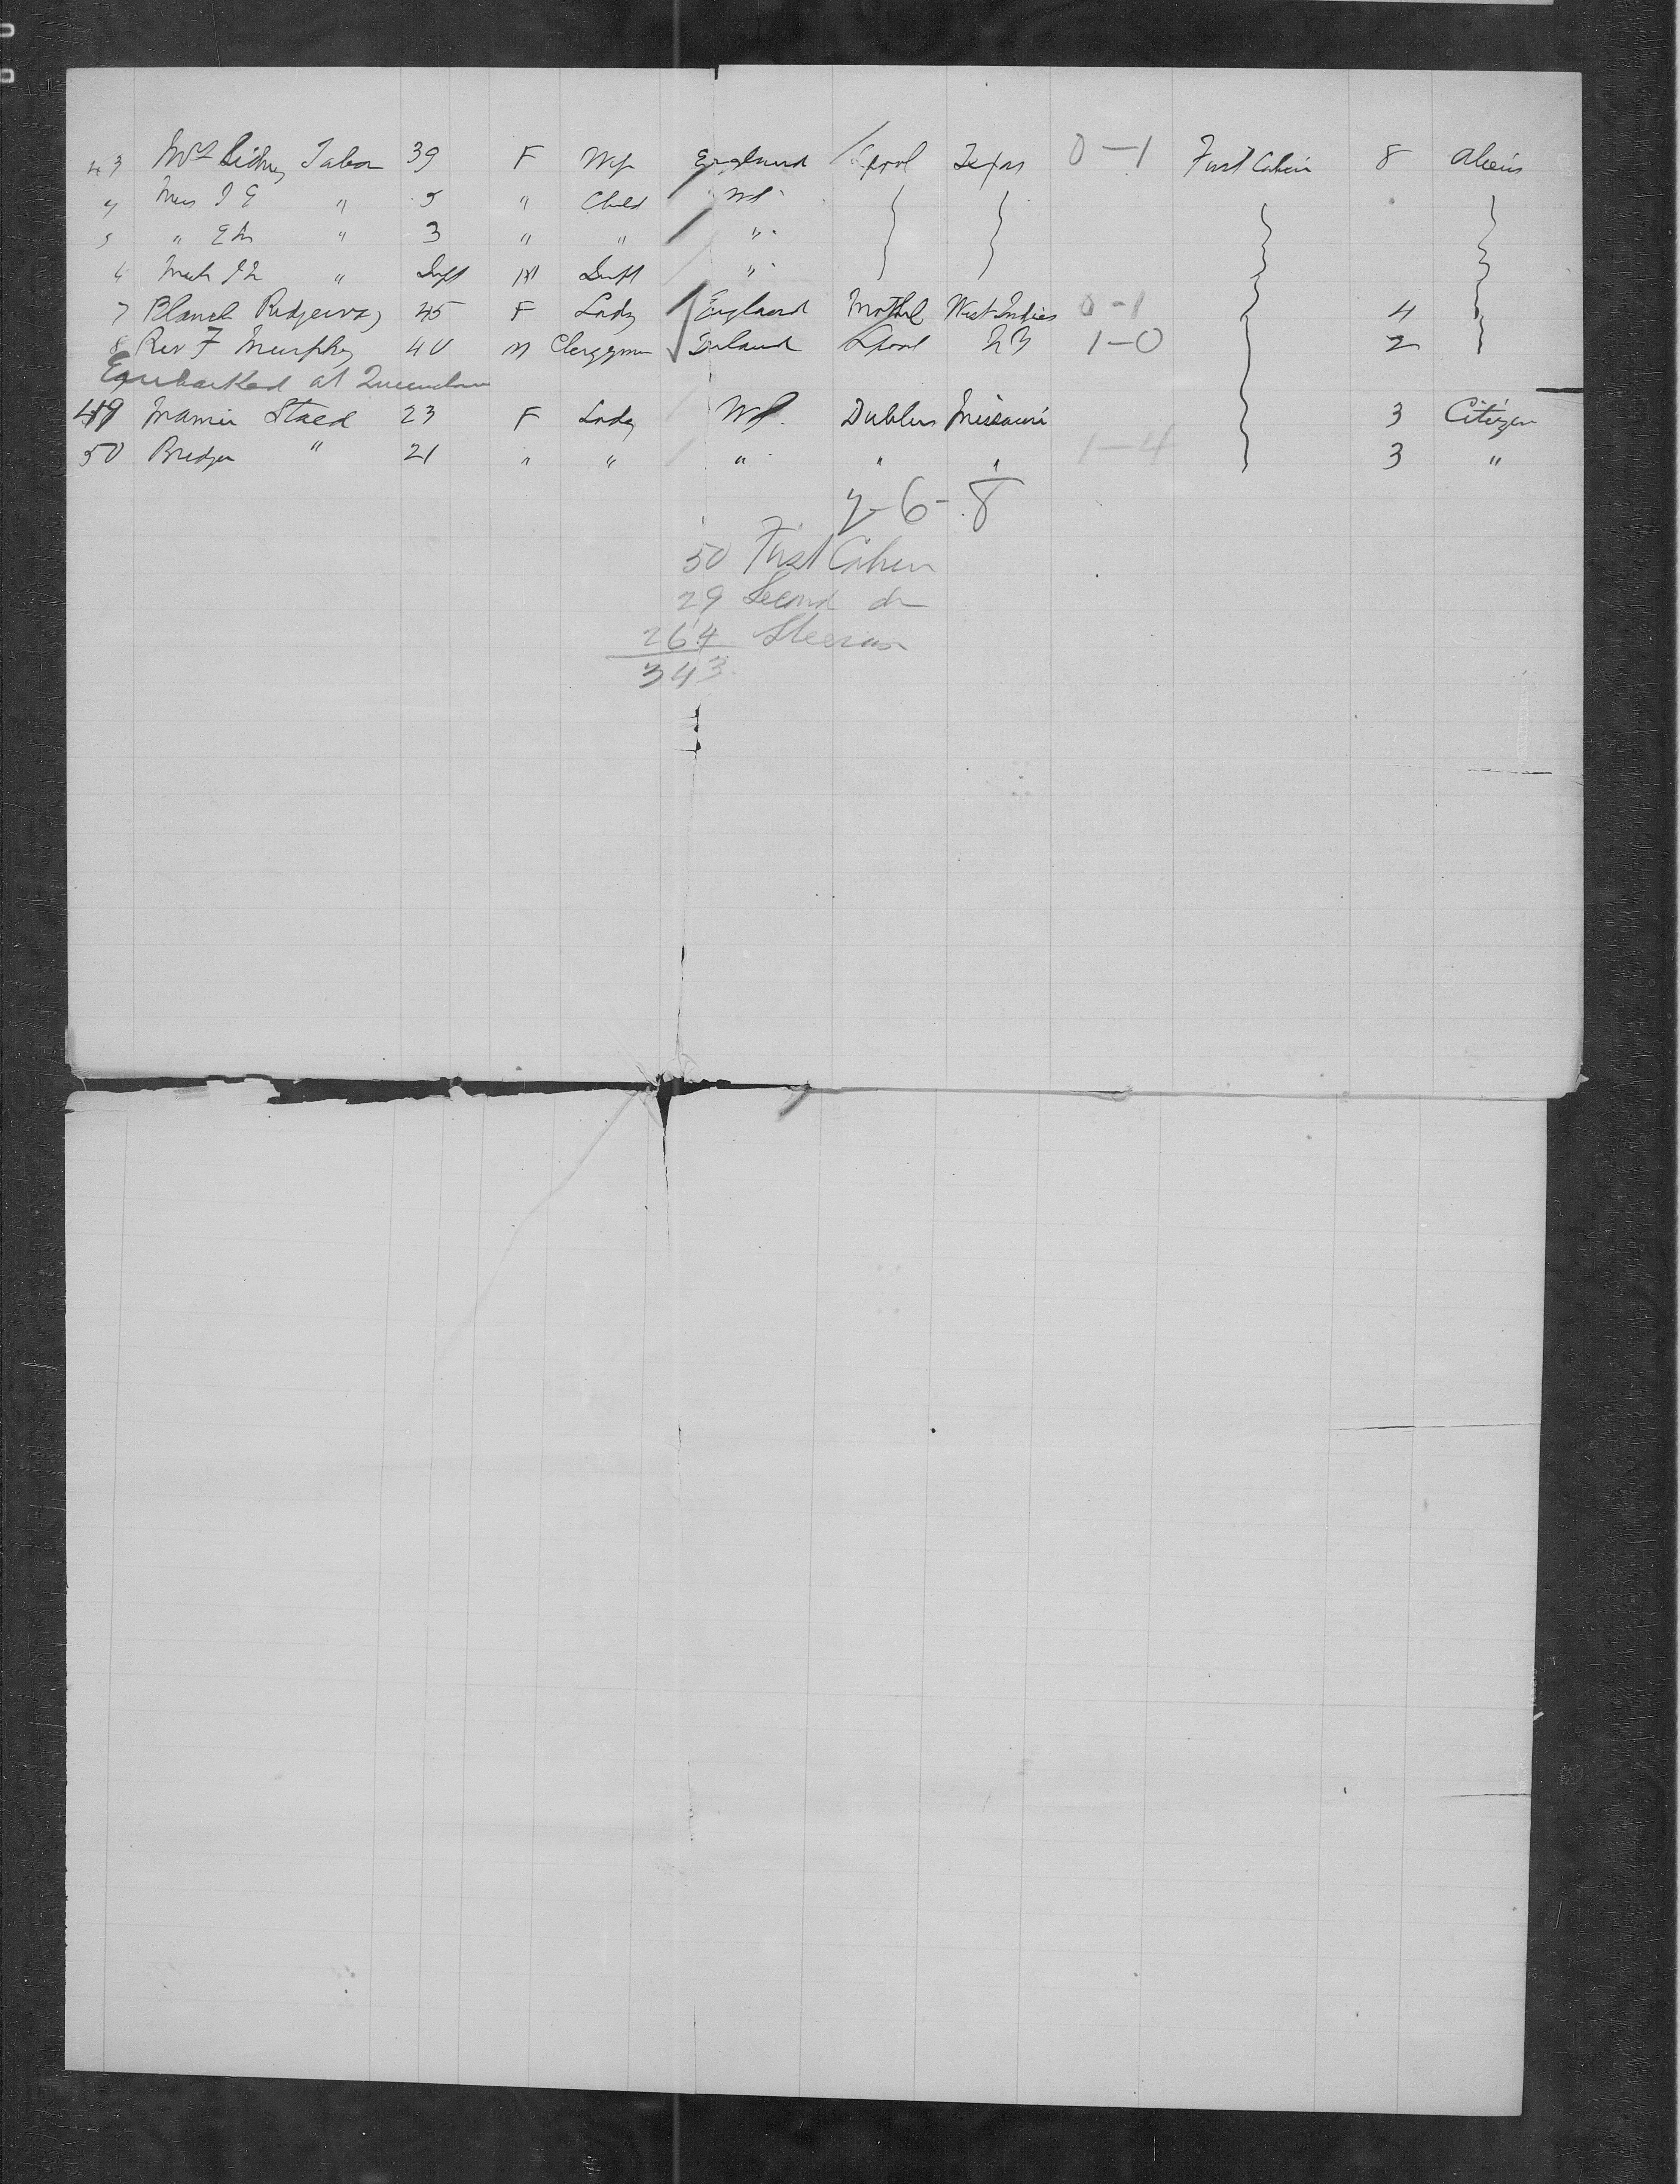 43 Mrs Sidney Tabor 39 F Wife England Lpool Texas 0-1 First Cabin 8 Aliens
4 Miss I G " 5 " Child US
5 " E M " 3 " " "
6 " Inft M Inft "
7 Blanch Ridgeway 45 F Lady England West Indies 0-1 4
8 Rev F Murphy 40 M Clergyman Ireland Lpool NY 1-0 2
Embarked at Queenstown
49 Mamie Staed 23 F Lady US Dublin Missouri 3 Citizen
50 " 21 " " " " " 1-4 3 "
2-6-8
50 First Cabin
29 Second do
264 Steerage
343